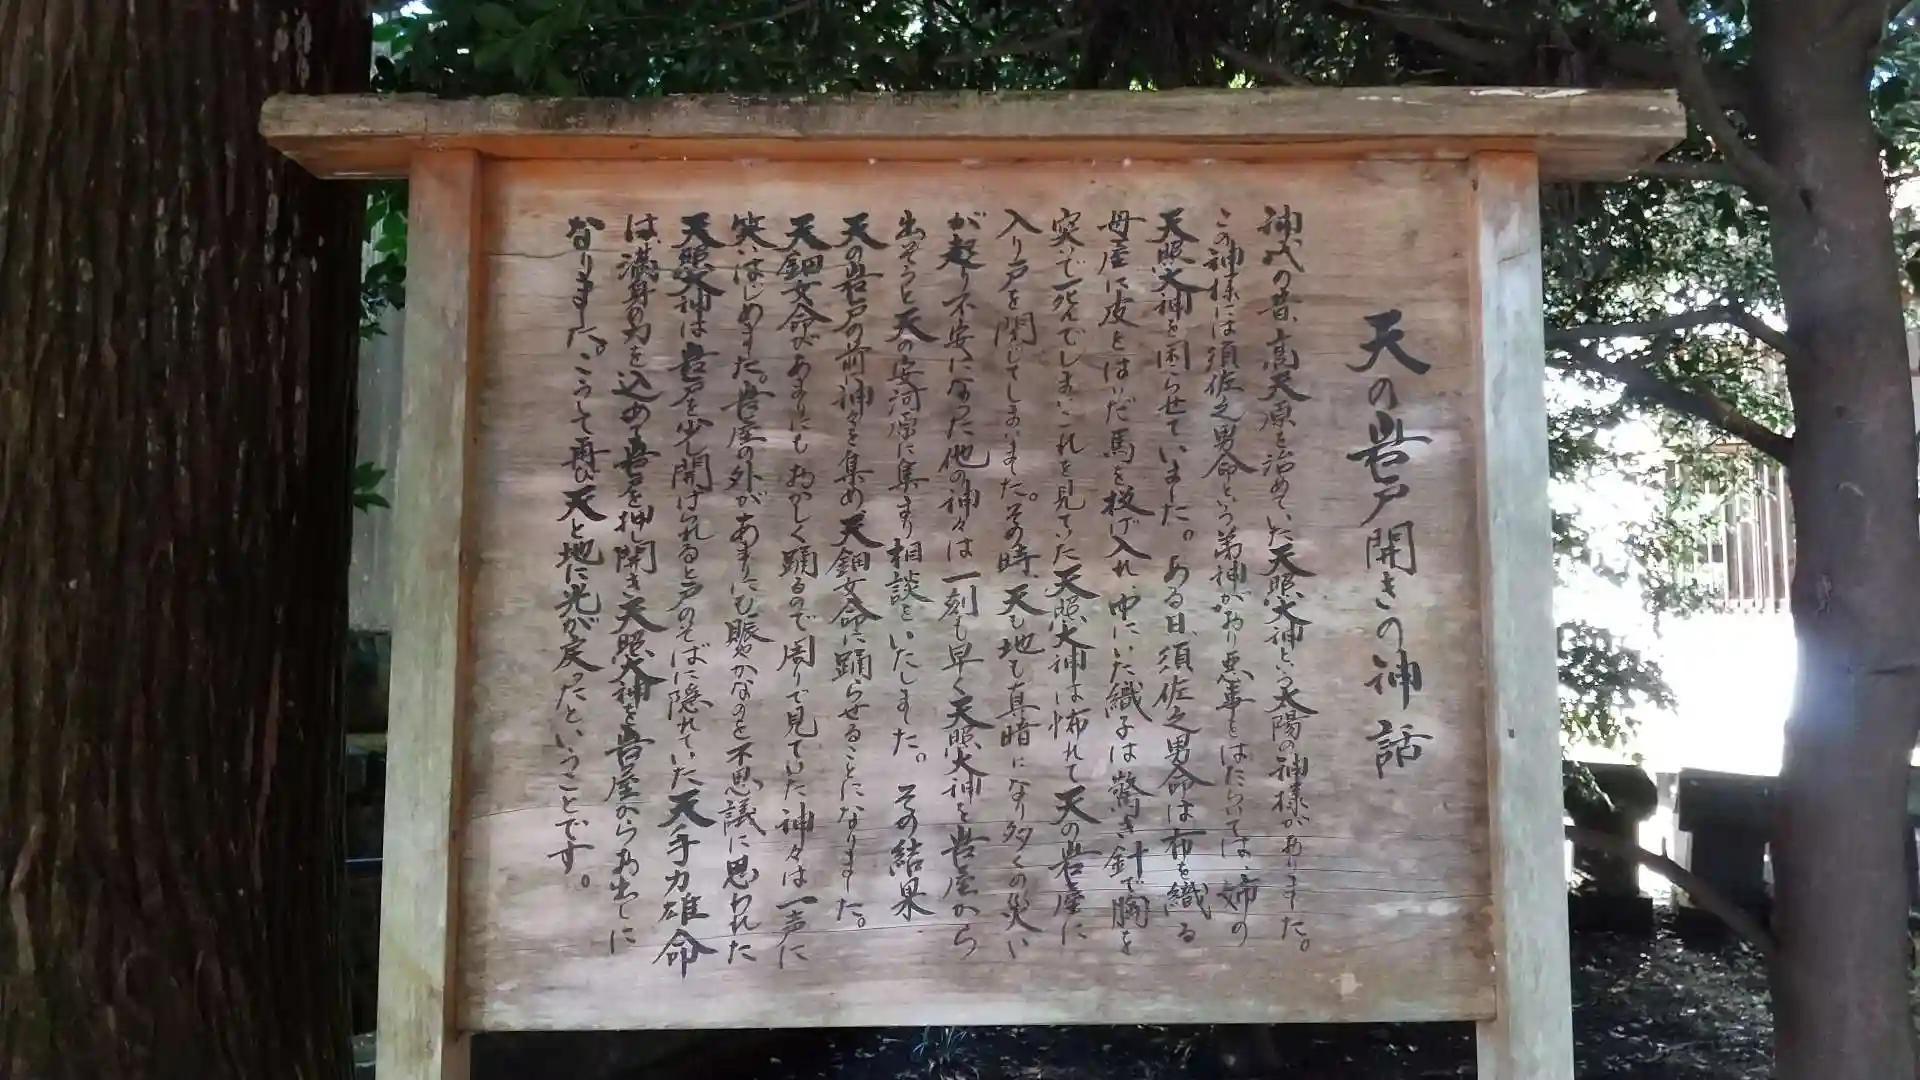 天の岩戸開きの神話
神代の昔、高天原を治めていた天照大神という太陽の神様がありました。
この神様には須佐之男命という弟神がおり悪事をはたらいては姉の
天照大神を困らせていました。ある日、須佐之男命は布を織る
母屋に皮をはいだ馬を投げ入れ、中にいた織子は驚き針で胸を
突いて死んでしまいこれを見ていた天照大神は怖れて天の岩屋に
入り戸を閉じてしまいました。その時、天も地も真暗になり多くの災い
が起り不安になった他の神々は一刻も早く天照大神を岩屋から
出そうと天の安河原に集まり相談をいたしました。その結果
天の岩戸の前に神々を集め、天鈿女命に踊らせることになりました。
天鈿女命があまりにもおかしく踊るので周りで見ていた神々は一声に
笑いはじめました。岩屋の外があまりにも賑やかなのを不思議に思われた
天照大神は岩戸を少し開けられると戸のそばに隠れていた天手力雄命
は、満身の力を込めて岩を押し開き天照大神を岩屋からお出しに
なりました。こうして再び天と地に光が戻ったということです。